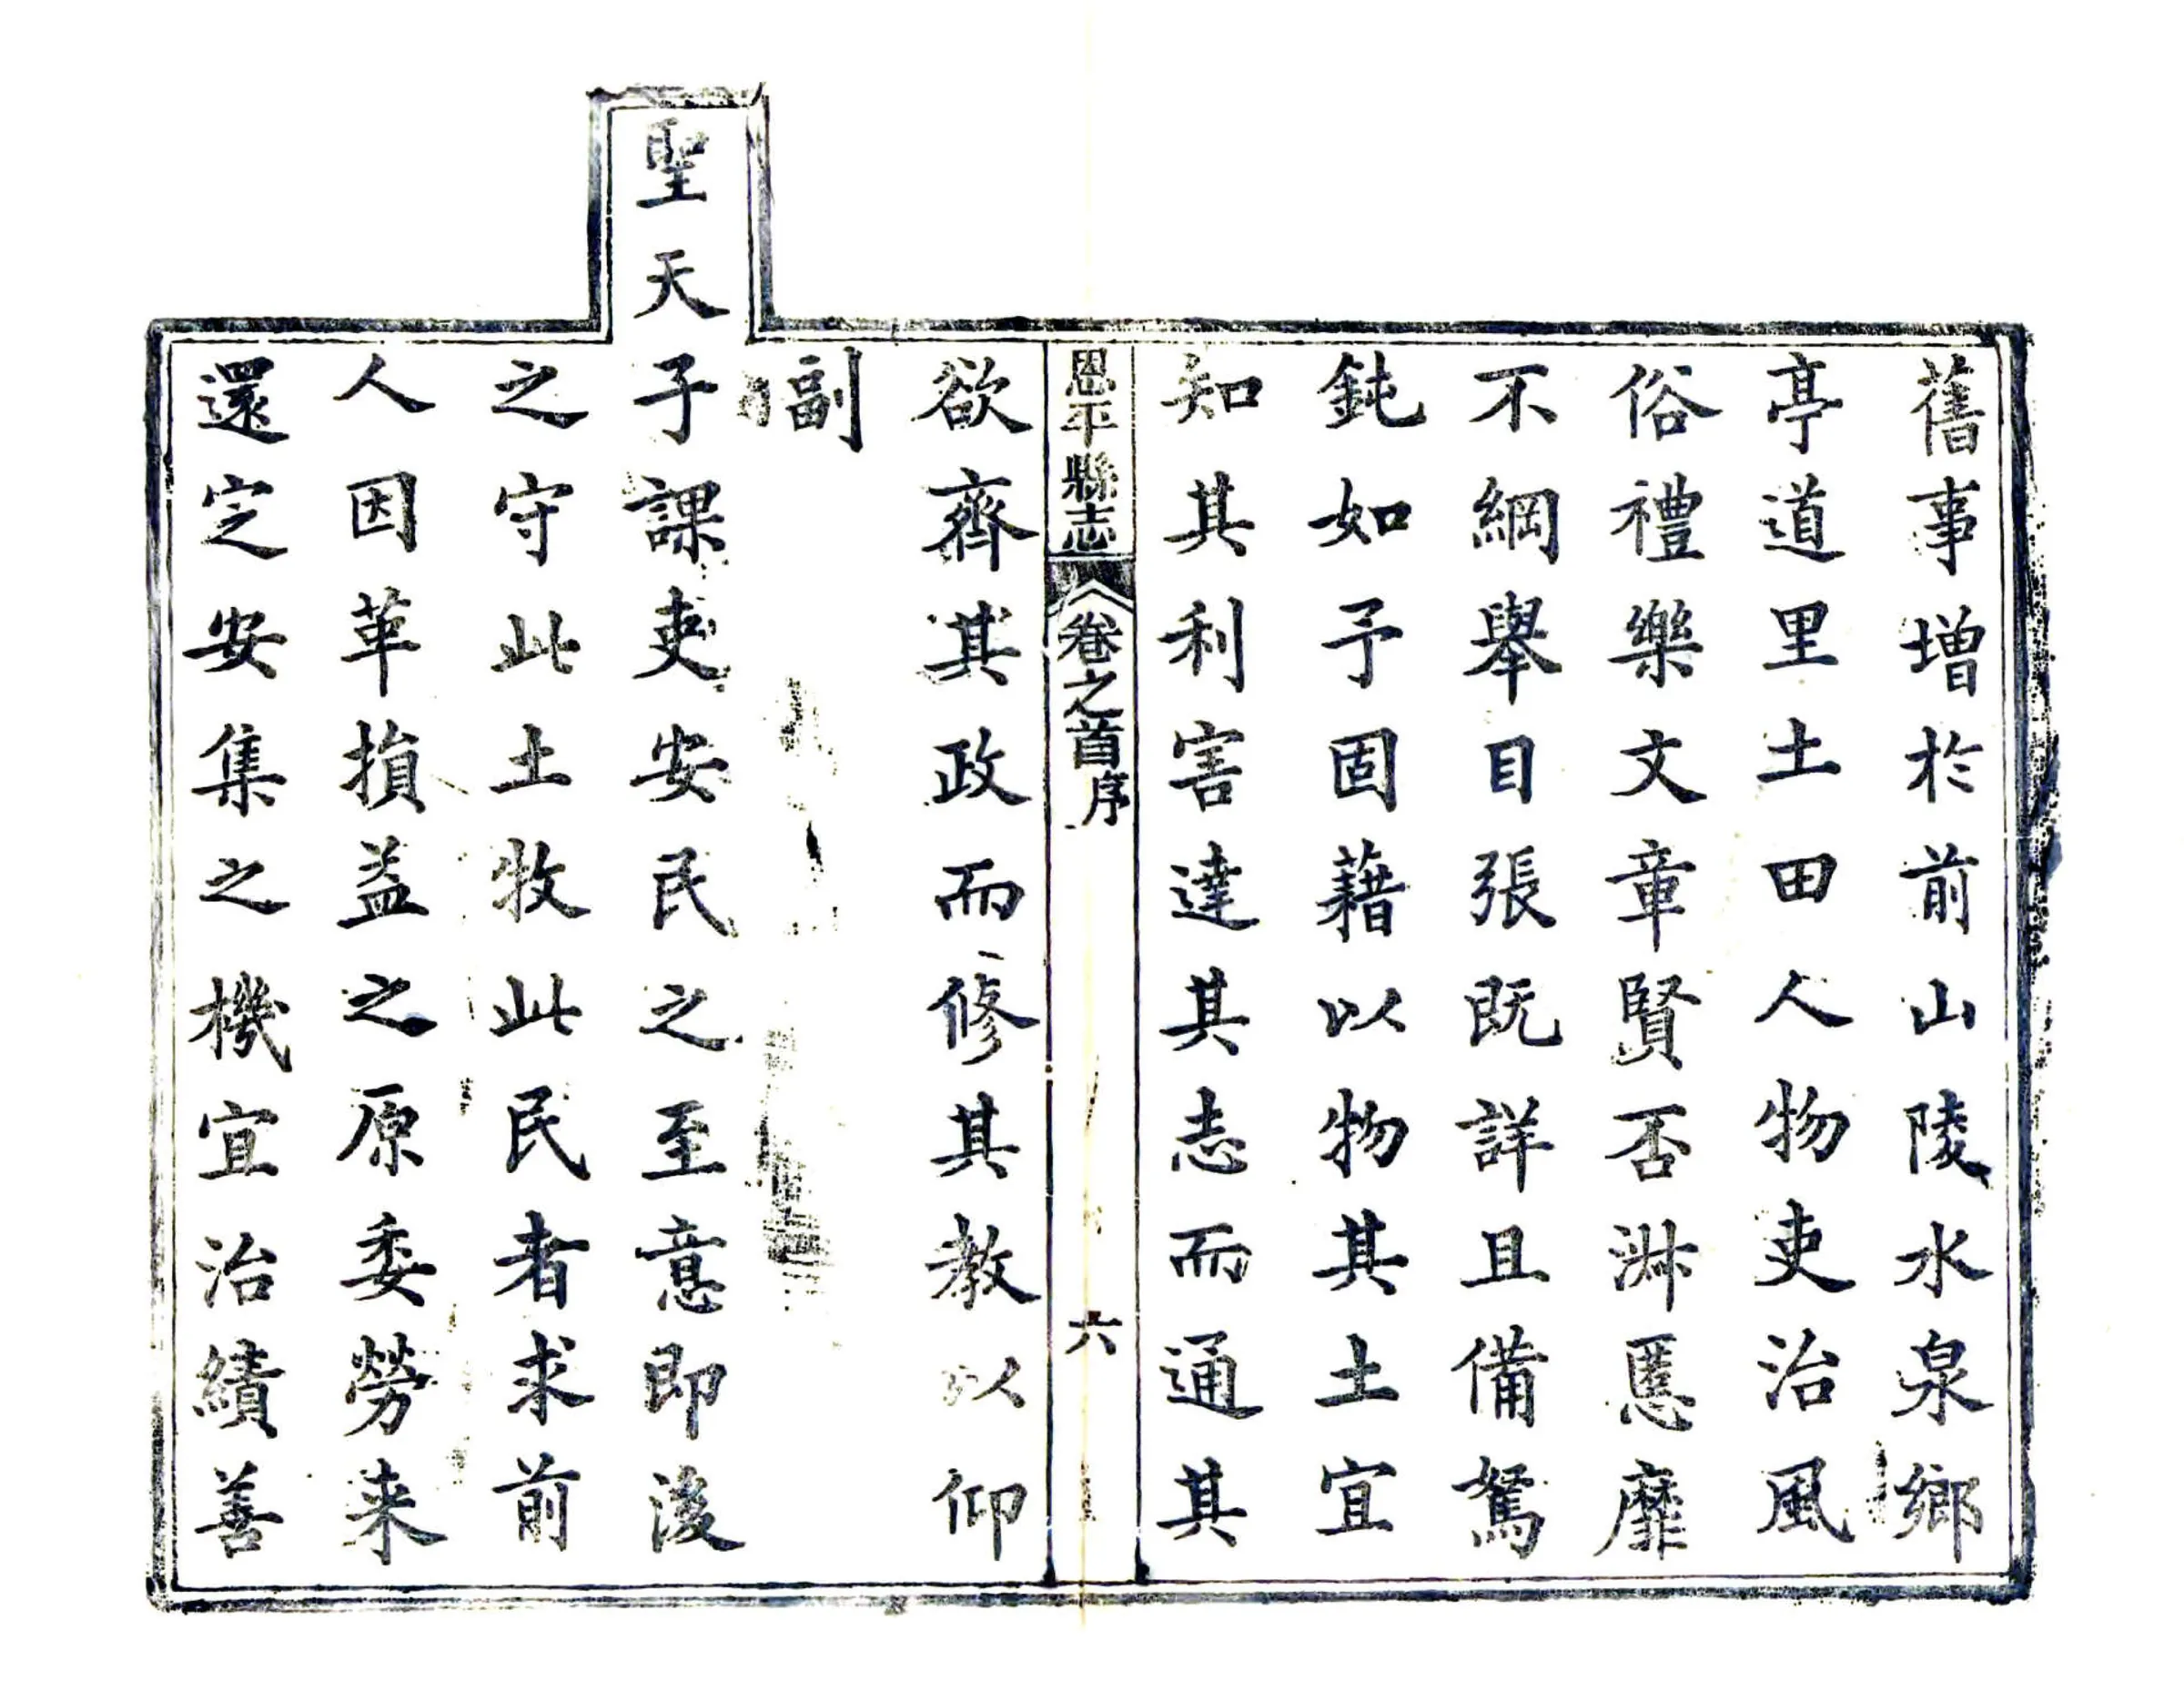 舊事增於前山陵水泉鄉
亭道里土田人物吏治風
俗禮樂文章賢否淑慝靡
不綱舉目張既詳且備駑
鈍如予固藉以物其土宜
知其利害達其志而通其
恩平縣志 卷之首序 六
欲齊其政而修其教以仰
副
聖天子課吏安民之至意即後
之守此土牧此民者求前
人因革損益之原委勞来
還定安集之機宜治績善